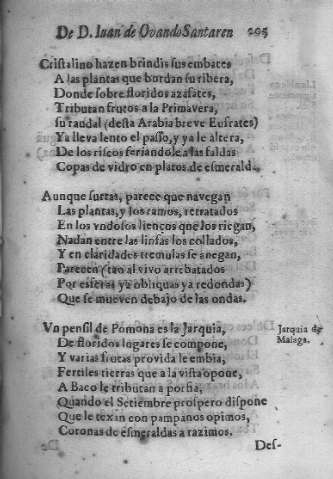 De D. Iuan de Ovando Santaren 205
Cristalino hazen brindis sus embates
A las plantas que bordan su ribera,
Donde sobre floridos azafates,
Tributan frutos a la Primavera,
su raudal (desta Arabia breve Eufrates)
Ya lleva lento el passo, y ya le altera,
De los riscos feriandole a las faldas
Copas de vidro en platos de esmerald.
Aunque surtas, parece que navegan
Las plantas, y los ramos, retratados
En los vndosos lienços que los riegan,
Nadan entre las linfas los collados,
Y en claridades tremulas se anegan,
Parecen (tan al vivo arrebatados
Por esferas ya obliquas ya redondas)
Que se mueven debajo de las ondas.
Vn pensil de Pomona es la Jarquia,
De floridos logares se compone,
Y varias frutas provida le embia,
Fertiles tierras que a la vista opone,
A Baco le tributan a porfia,
Quando el Setiembre prospero dispone
Que le texan con pampanos opimos,
Coronas de esmeraldas a razimos.
Jarquia de
Malaga.
Des-